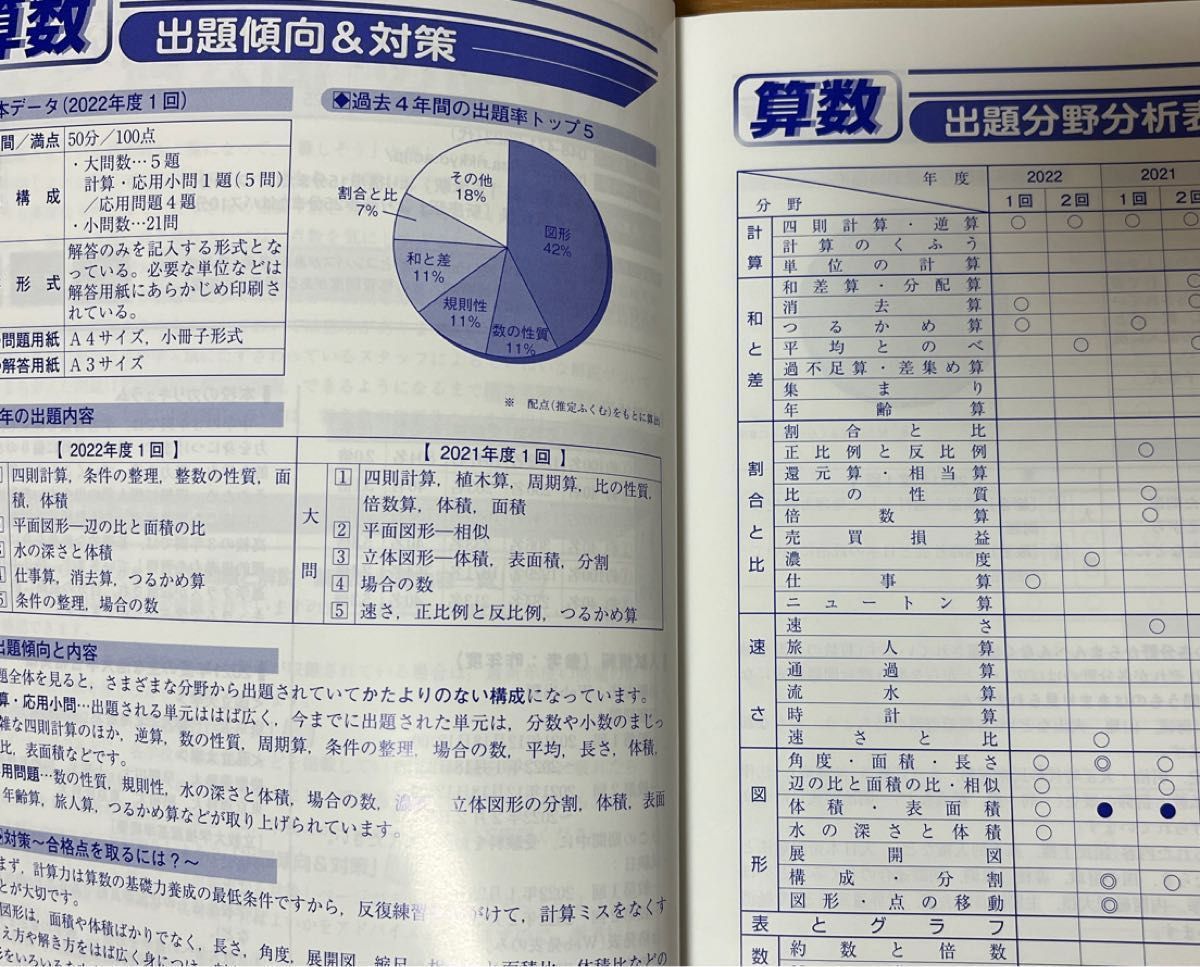 算数
出題傾向&対策
本データ(2022年度1回)
間/満点 50分/100点
構成
・大問数…5題
計算・応用小問1題(5問)
/応用問題4題
・小問数…21問
形式
解答のみを記入する形式とな
っている。必要な単位などは
解答用紙にあらかじめ印刷さ
れている。
問題用紙 A4サイズ,小冊子形式
解答用紙 A3サイズ
◆過去4年間の出題率トップ5
その他
18%
割合と比
7%
和と差
11%
規則性
11%
数の性質
11%
図形
42%
※ 配点(推定ふくむ)をもとに算出
年の出題内容
【2022年度1回】
四則計算,条件の整理,整数の性質,面
積,体積
平面図形―辺の比と面積の比
水の深さと体積
仕事算,消去算,つるかめ算
条件の整理,場合の数
大問
【2021年度1回】
1 四則計算,植木算,周期算,比の性質,
倍数算,体積,面積
2 平面図形―相似
3 立体図形―体積,表面積,分割
4 場合の数
5 速さ,正比例と反比例,つるかめ算
出題傾向と内容
題全体を見ると,さまざまな分野から出題されていてかたよりのない構成になっています。
算・応用小問…出題される単元ははば広く,今までに出題された単元は,分数や小数のまじっ
雑な四則計算のほか,逆算,数の性質,周期算,条件の整理,場合の数,平均,長さ,体積,
比,表面積などです。
用問題…数の性質,規則性,水の深さと体積,場合の数,濃度,立体図形の分割,体積,表面
年齢算,旅人算,つるかめ算などが取り上げられています。
対策~合格点を取るには?~
まず,計算力は算数の基礎力養成の最低条件ですから,反復練習 がけて,計算ミスをなくす
とが大切です。
図形は,面積や体積ばかりでなく,長さ,角度,展開図,縮尺,
え方や解き方をはば広く身につけ
算数
出題分野分析表
年度 2022 2021
分野 1回 2回 1回 2回
計算
四則計算・逆算 ○ ○ ○ ○
計算のくふう
単位の計算
和と差
和差算・分配算 ○
消去算 ○ ○
つるかめ算 ○ ○
平均とのべ ○ ○
過不足算・差集め算
集まり
年齢算
割合と比
割合と比
正比例と反比例 ○
還元算・相当算
比の性質 ○
倍数算 ○
売買損益
濃度 ○
仕事算 ○
ニュートン算
速さ
速さ ○
旅人算
通過算
流水算
時計算
速さと比 ○
図形
角度・面積・長さ ○ ◎ ○
辺の比と面積の比・相似 ○ ○
体積・表面積 ○ ● ●
水の深さと体積 ○
展開図
構成・分割 ◎ ○
図形・点の移動 ◎
表とグラフ
数
約数と倍数